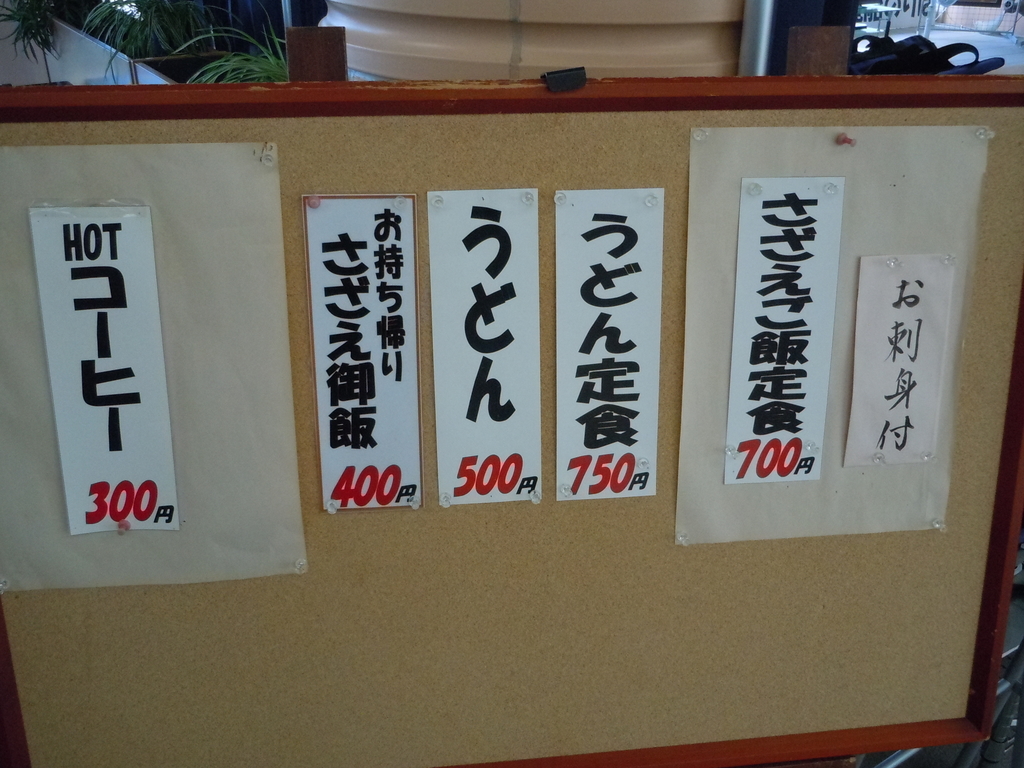 HOT
コーヒー
300円
お持ち帰り
さざえ御飯
400円
うどん
500円
うどん定食
750円
さざえご飯定食
700円
お刺身付